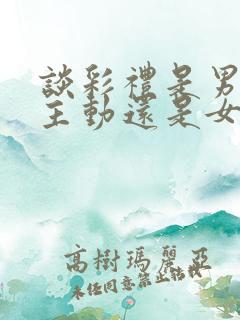 談彩禮是男
主動還是女
高樹瑪麗亞
未经同意禁止转载